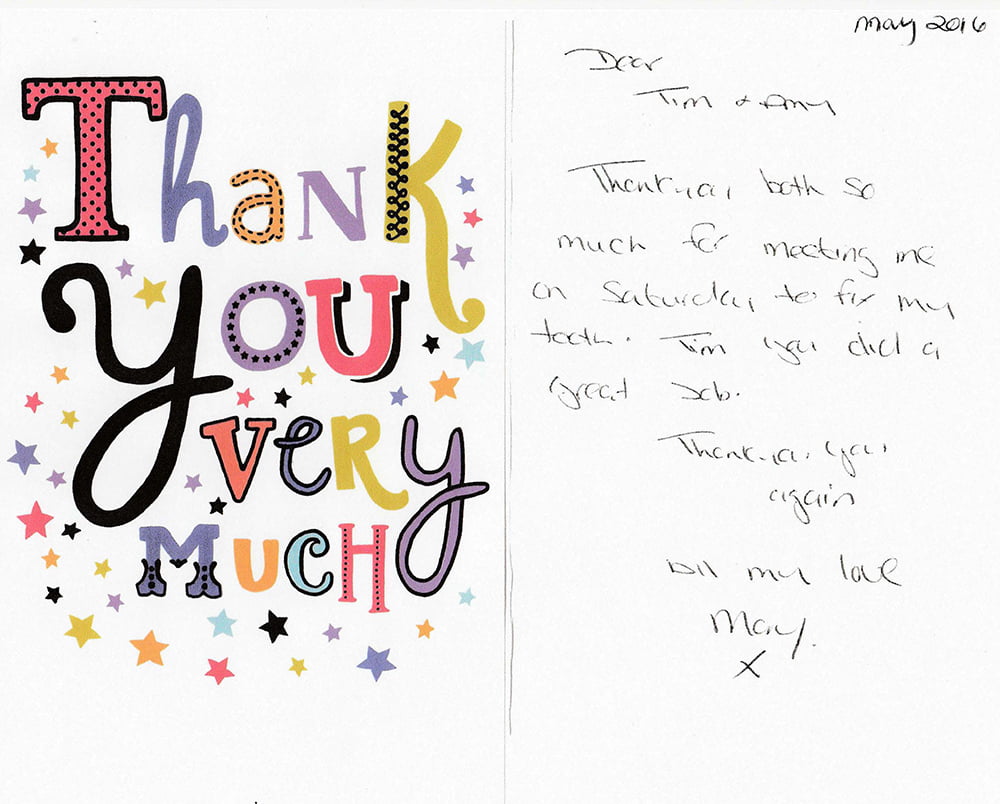 Thank
You
very
Much
May 2016
Dear
Tim & Amy
Thankyou both so
much for meeting me
on Saturday to fix my
tooth. Tim you did a
great Job.
Thank you you
again
All my love
Mary.
x